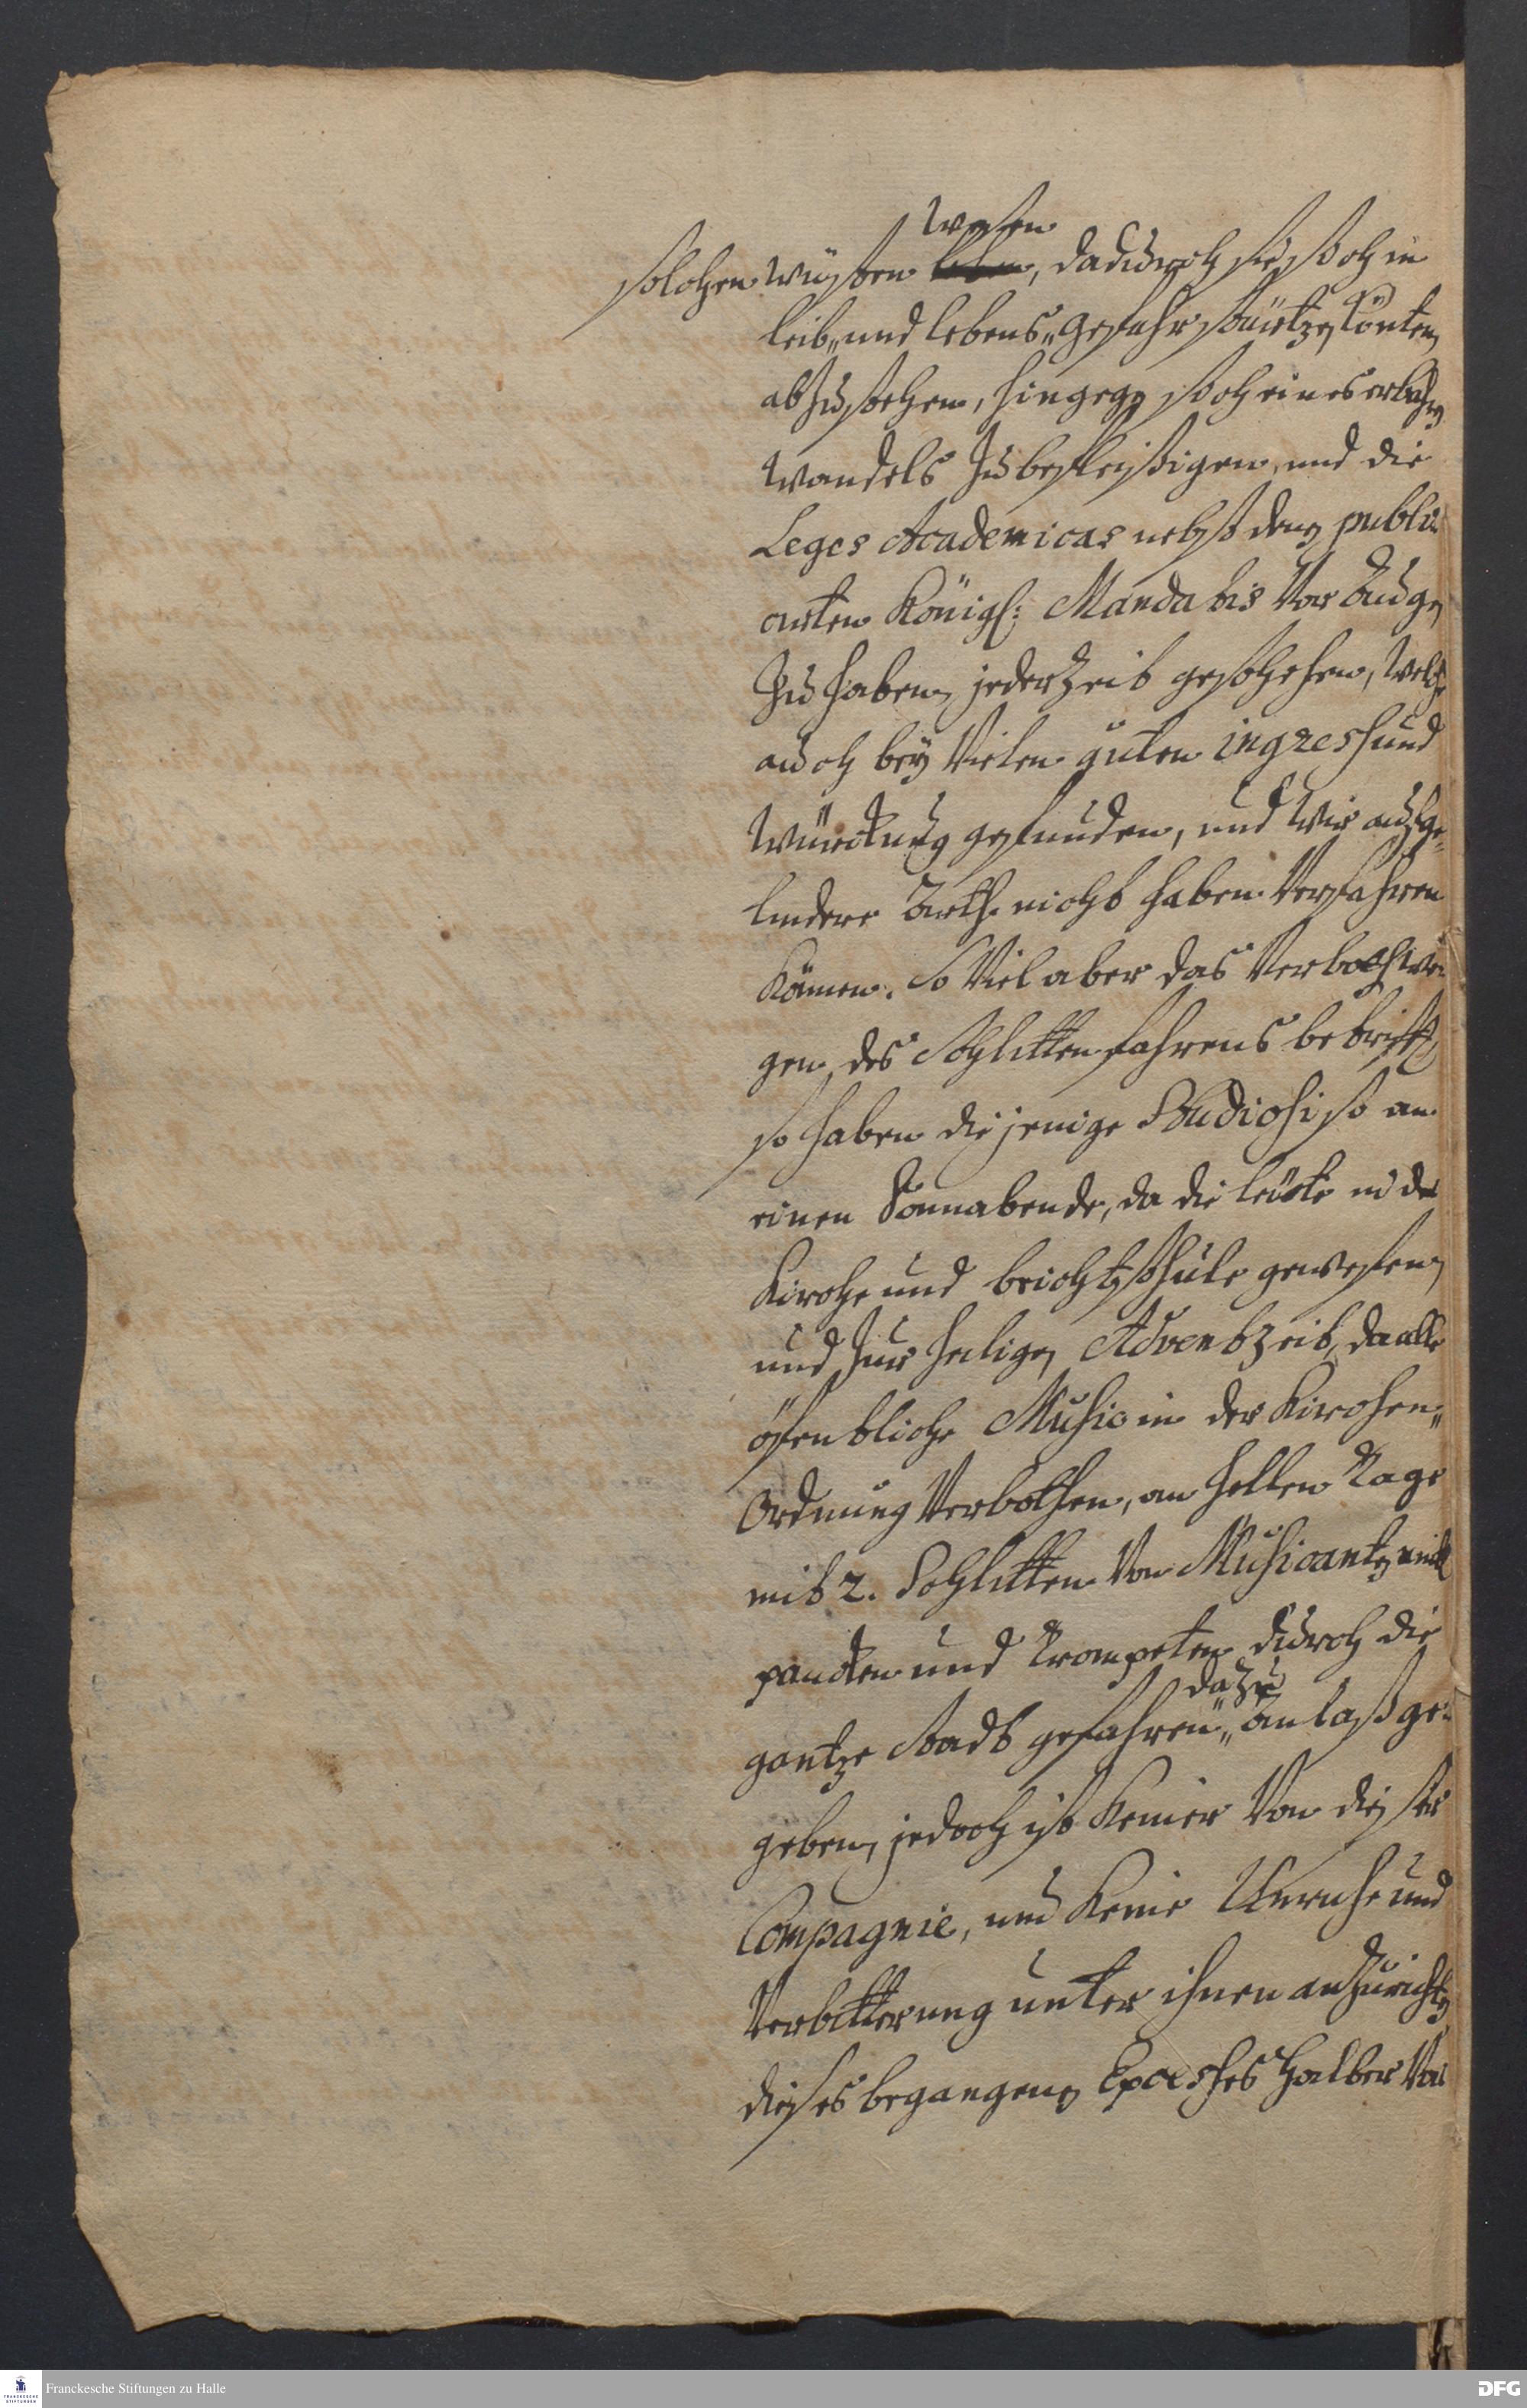 wesen
solchen wüsten leben, dadurch sie sich in
leib- und lebens-Gefahr stürtzen könten,
abzustehen, hingegen sich eines erbahren
wandels zu befleißigen, und die
Leges Academicas nebst denen publi-
cirten Königl: Mandatis vor Augen
zu haben, jederzeit geschehen, welche
auch bey vielen guten ingress und
würckung gefunden, und wir auf ge-
lindere Arth nicht haben verfahren
können. So viel aber das Verboth we-
gen des Schlittenfahrens betrifft,
so haben diejenige Studiosi so an
einen Sonnabende, da die leüte in der
Kirche und beichtstuhle gewesen,
und zur heiligen Adventzeit, da alle
öffentliche Music in der Kirchen-
Ordnung verbothen, an hellen Tage
mit 2. Schlitten von Musicanten mit
paucken und Trompeten durch die
dazu
gantze Stadt gefahren, Anlaß ge-
geben, jedoch ist keiner von dieser
Compagnie, um keine Unruhe und
Verbitterung unter ihnen anzurichten
dieses begangenen Excesses halber vor
Franckesche Stiftungen zu Halle
DFG